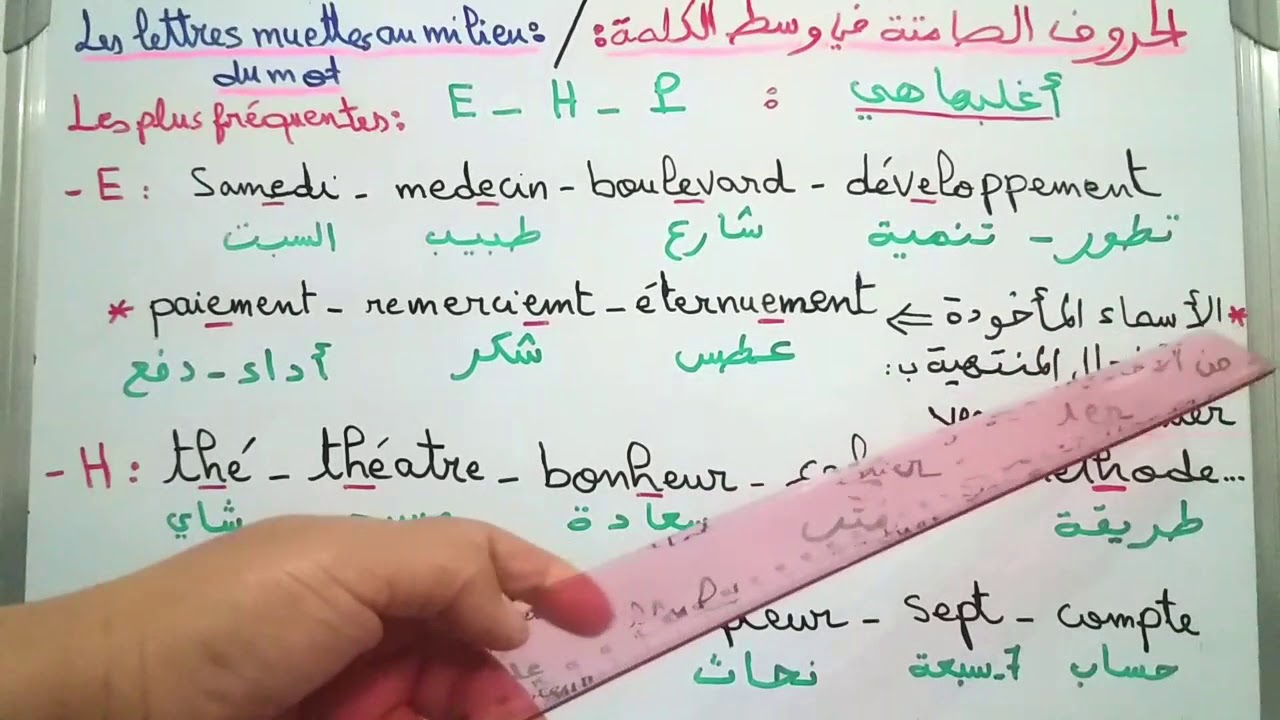 Les lettres muettes au milieu: / الحروف الصامتة في وسط الكلمة:
du mot
Les plus fréquentes: E - H - P : أغلبها هي
- E : Samedi - medecin - boulevard - développement
السبت طبيب شارع تطور - تنمية
* paiement - remerciemt - éternuement ⇐ الأسماء المأخودة *
أداء - دفع شكر عطس من المنتهية ب:
- H : thé - théatre - bonheur - méthode...
شاي سعادة طريقة
sept - compte
نحات 7. سبعة حساب